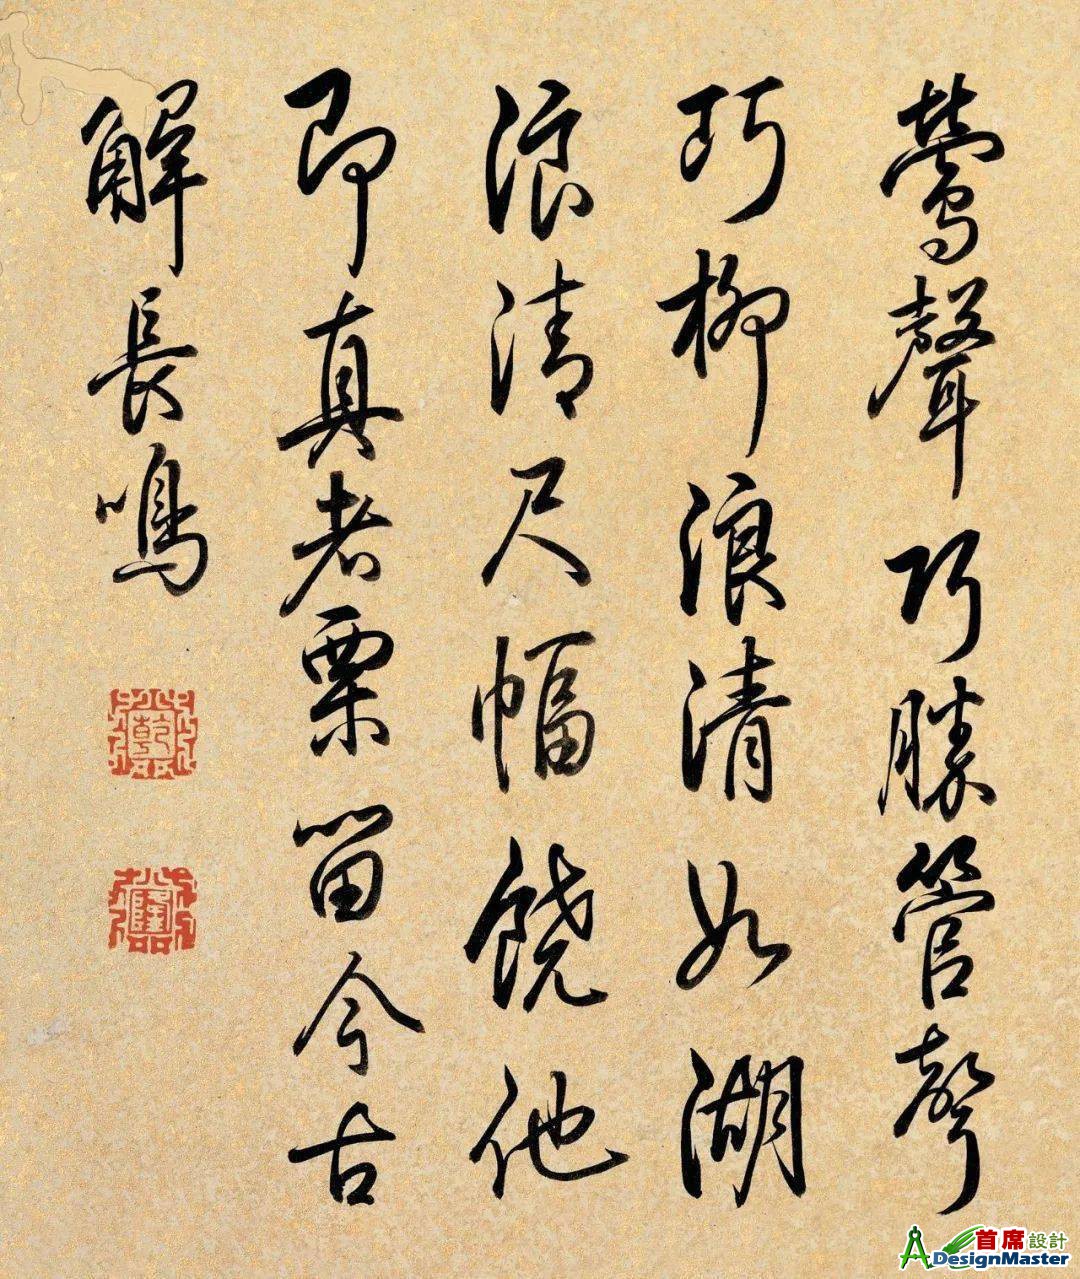 鶯聲巧勝管聲
巧柳浪清如湖
浪清尺幅饒他
即真者栗留今古
解長鳴
乾
隆
首席設計
DesignMaster